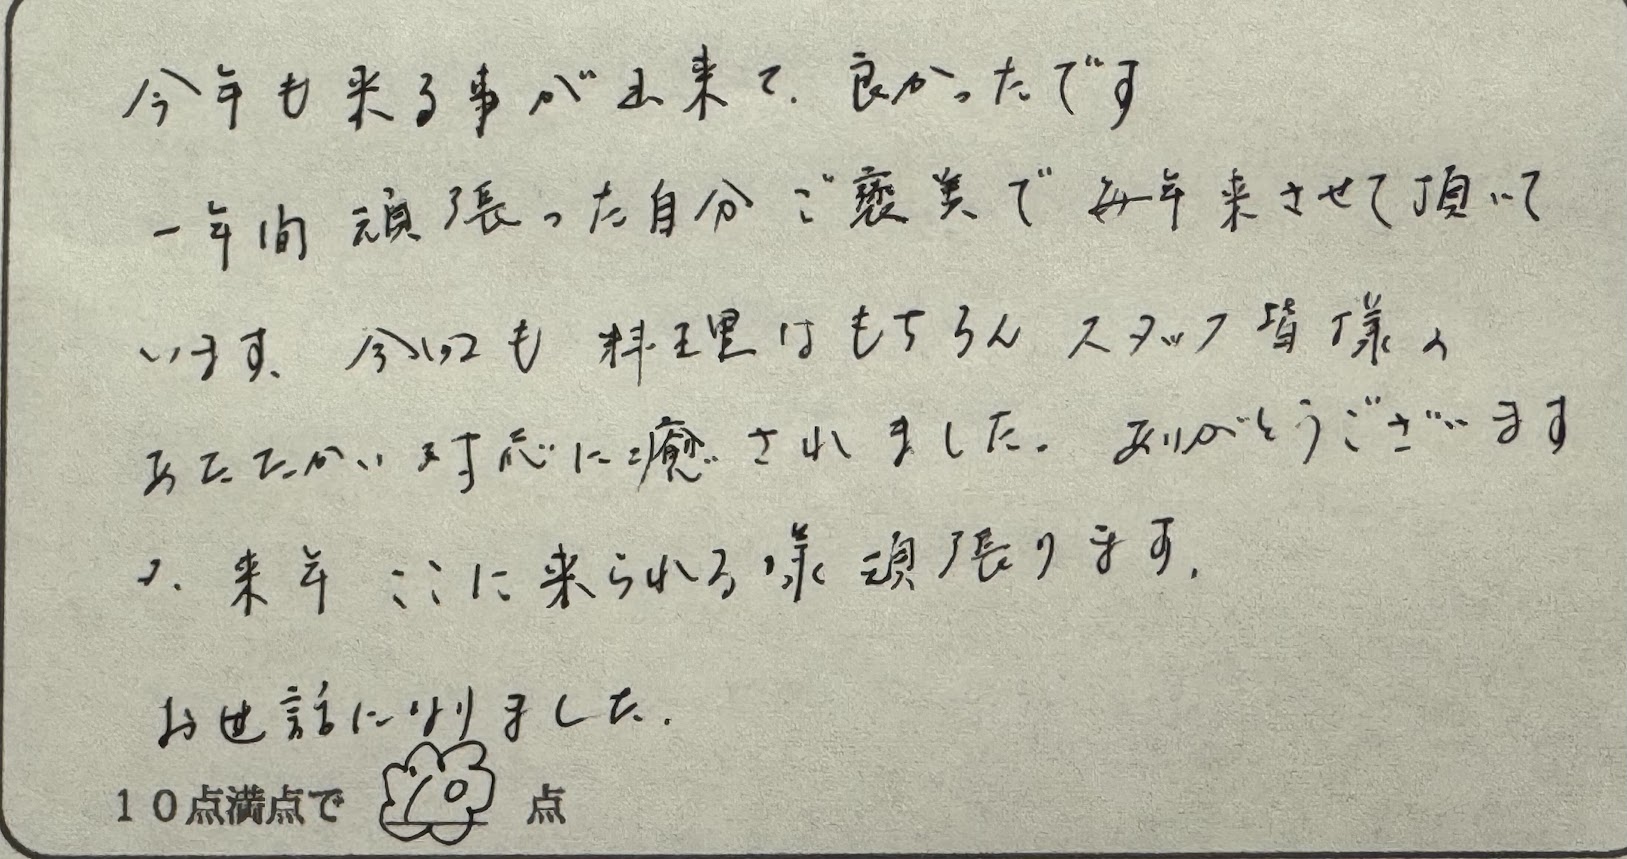 今年も来る事が出来て、良かったです
一年間頑張った自分ご褒美で毎年来させて頂いて
います、今回も料理はもちろんスタッフ皆様の
あたたかい対応に癒されました。ありがとうございます
又、来年ここに来られる様頑張ります。
お世話になりました。
10点満点で 10 点